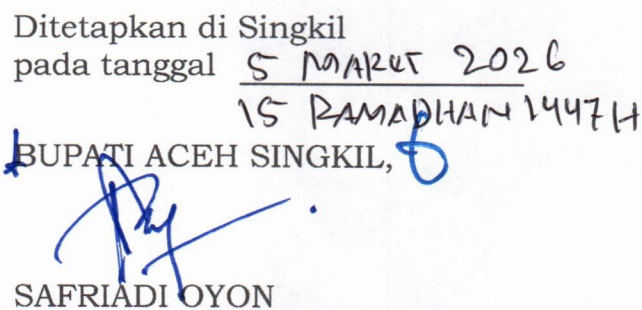 Ditetapkan di Singkil
pada tanggal 5 MARET 2026
15 RAMADHAN 1447 H
BUPATI ACEH SINGKIL,
SAFRIADI OYON